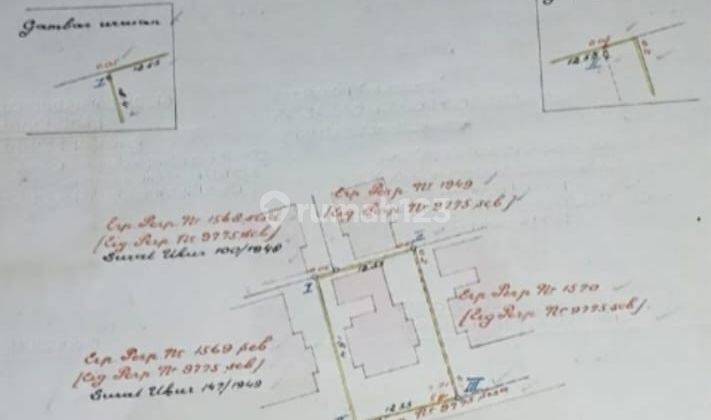 Gambar urusan
0.05
12.55
I
Erp. Perp. Nr 1949
(Eig Perp. Nr 9775 seb)
Erp. Perp. Nr 1568 seb
(Eig Perp. Nr 9775 seb)
Surat Ukur 100/1948
rumah123
I
12.55
Erp. Perp Nr 1570
(Eig Perp Nr 9775 seb)
Erp. Perp. Nr 1569 seb
(Eig Perp. Nr 9775 seb)
Surat Ukur 147/1949
III
12.55
Nr 9775